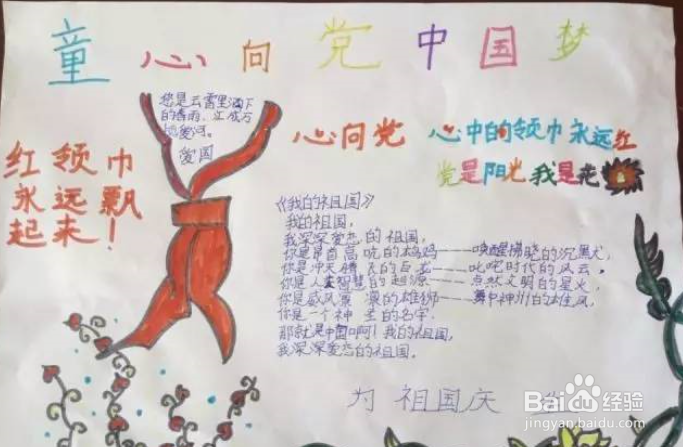 童心向党中国梦
您是云雷里洒下
的春雨,汇成万
爱河。
爱国
红领巾
永远飘
起来!
心向党
心中的领巾永远红
党是阳光我是花
《我的祖国》
我的祖国,
我深深爱恋的祖国,
你是昂首高吭的雄鸡——唤醒拂晓的沉黑犬,
你是冲天腾飞的巨龙——叱咤时代的风云,
你是人类智慧的起源——点燃文明的星火,
你是威风凛凛的雄狮——舞中神州的雄风,
你是一个神圣的名字,
那就是中国啊!我的祖国,
我深深爱恋的祖国。
为祖国庆生
Baidu经验
jingyan.baidu.com